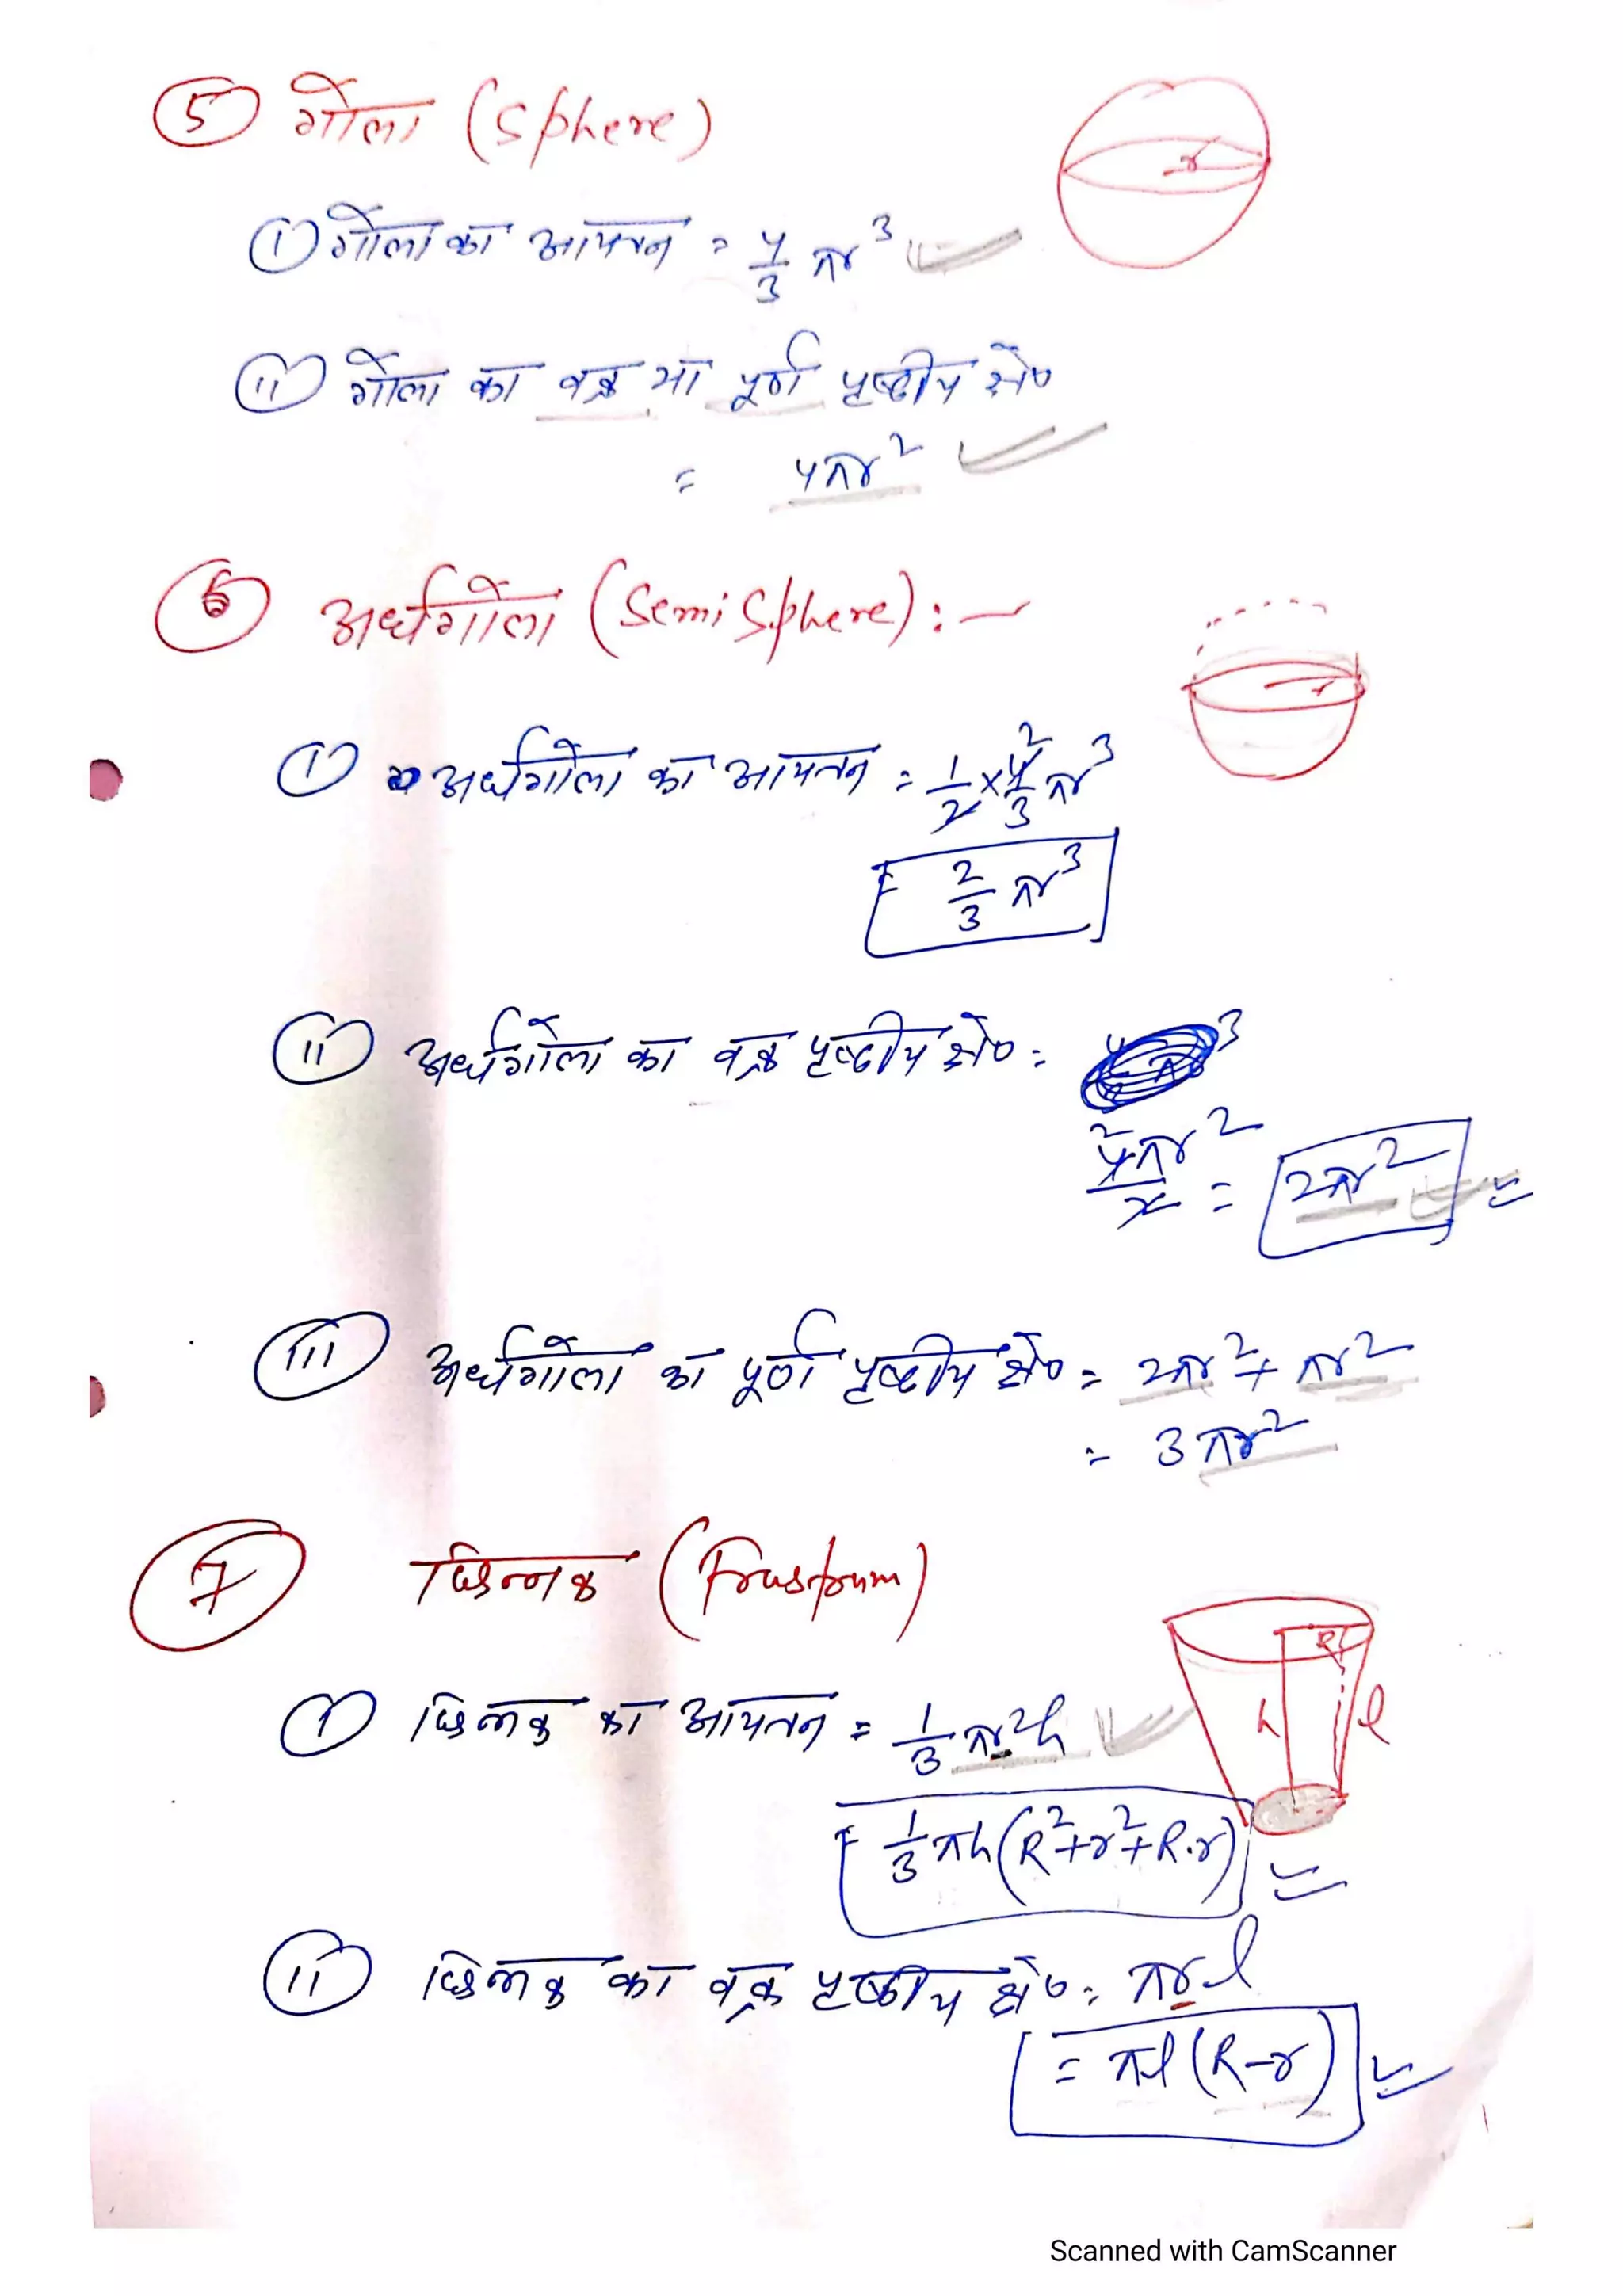 5 गोला (Sphere)
r
i गोला का आयतन = 4/3 πr³
ii गोला का वक्र या पूर्ण पृष्ठीय क्षे०
= 4πr²
6 अर्धगोला (Semi Sphere) : -
r
i अर्धगोला का आयतन = 1/2 × 4/3 πr³
= 2/3 πr³
ii अर्धगोला का वक्र पृष्ठीय क्षे० =
4πr²/2 = 2πr²
iii अर्धगोला का पूर्ण पृष्ठीय क्षे० = 2πr² + πr²
= 3πr²
7 छिन्नक (Frustrum)
R
h l
i छिन्नक का आयतन = 1/3 πr²h
= 1/3 πh (R² + r² + R.r)
ii छिन्नक का वक्र पृष्ठीय क्षे० = πrl
= πl (R-r)
Scanned with CamScanner